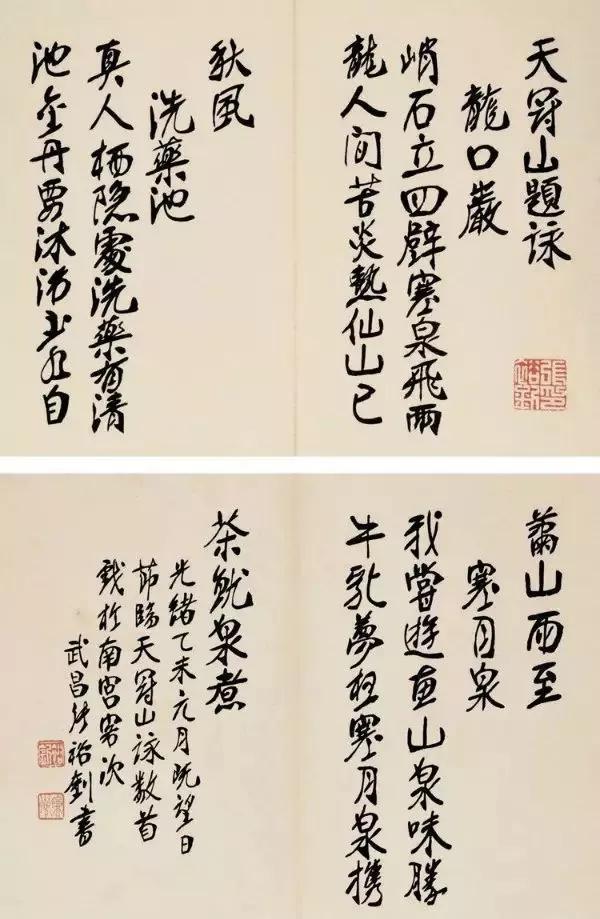 天冠山題詠
龍口巖
峭石立四壁寒泉飛兩
龍人間苦炎熱仙山已
秋風
洗藥池
真人栖隐處洗藥有清
池金丹要沐浴玉水自
萬山雨至
寒月泉
我嘗遊惠山泉味勝
牛乳夢想寒月泉攜
茶就泉煮
光緒乙未元月既望日
節臨天冠山詠數首
戲於南宮客次
武昌張裕釗書